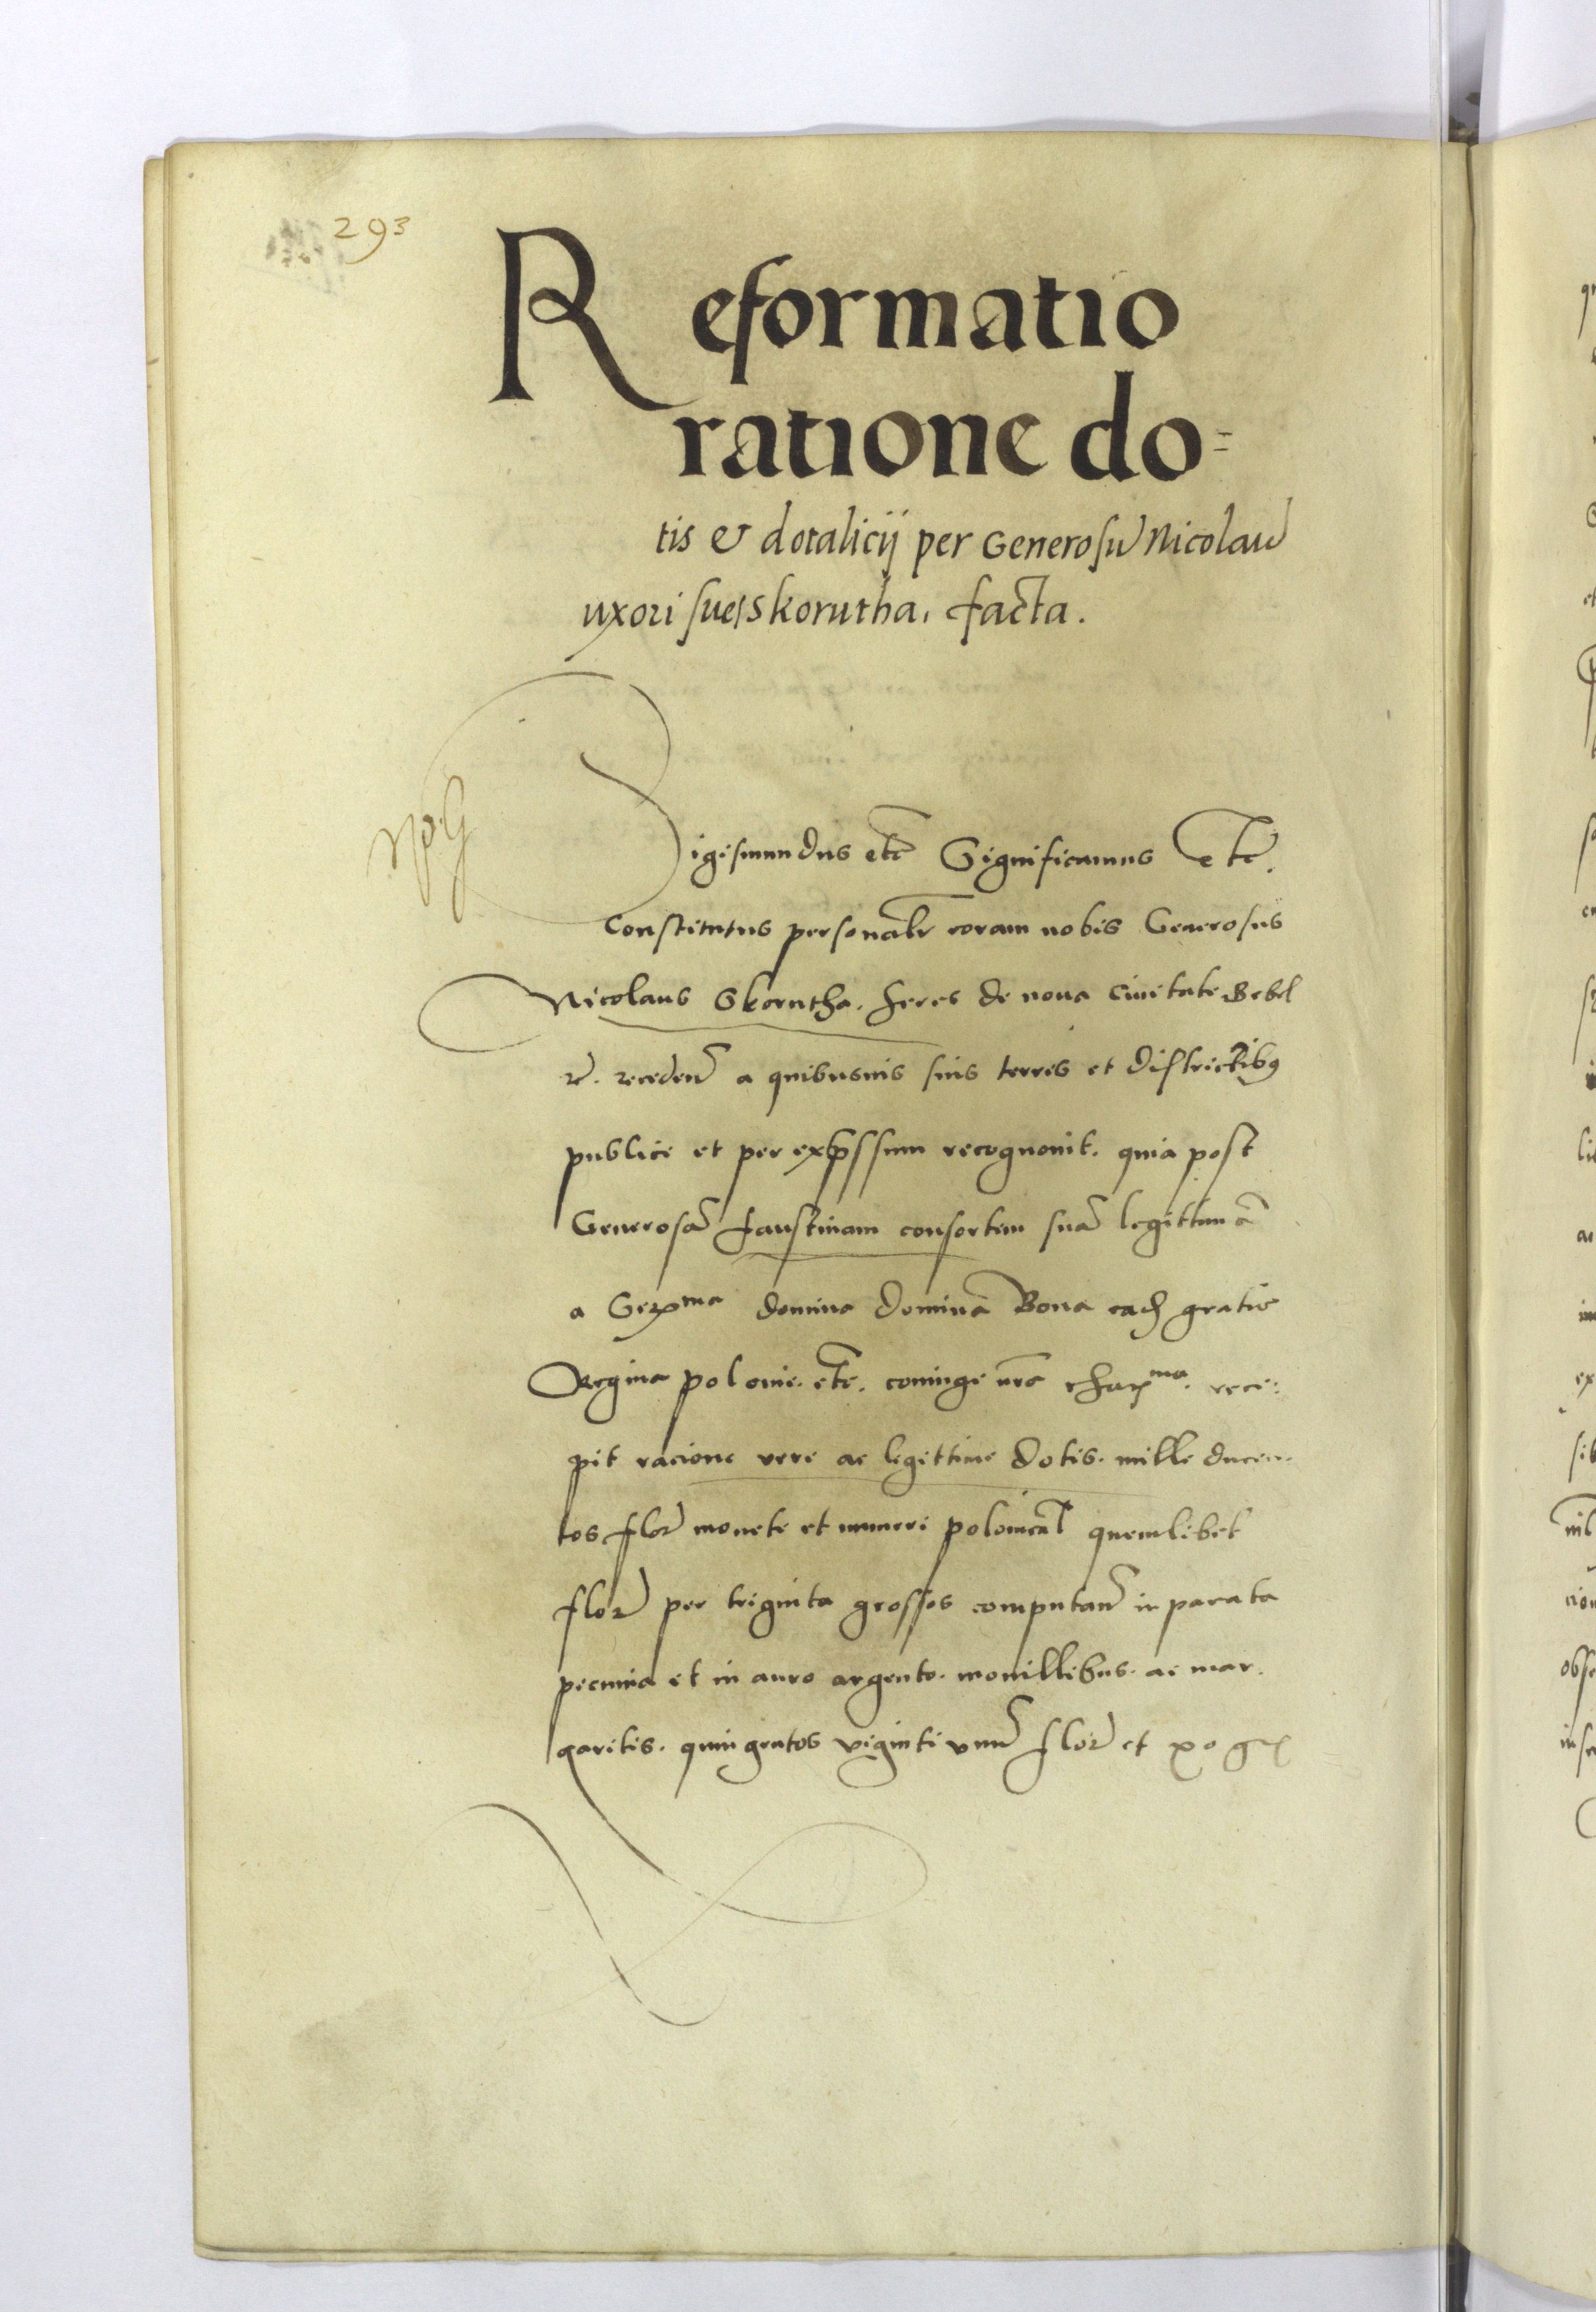 293
Reformatio
ratione do=
tis & dotalicij per Generosũ Nicolaũ
uxori sue Skorutha. facta.
Sigismundus etc̃ Significamus etc̃.
Constitutus personalr̃ coram nobis Generosus
Nicolaus Skorutha. heres de noua Ciuitate
recedeñ a quibusuis suis terris et districtibꝫ
publice et per exp̃ssum recognouit. quia post
Generosã faustinam consortem suã legittimã
a Serᵐᵃ domina dominã Bona eadẽ gratia
Regina polonie. etc̃. coniuge nr̃a charᵐᵃ. rece:
pit racione vere ac legittime dotis. mille ducen.
tos flor̃ monete et numeri polonicãl quemlibet
flor̃ per triginta grossos computañ in parata
pecunia et in auro argento. monillibus. ac mar.
garitis. quingentos viginti vnũ flor̃ et